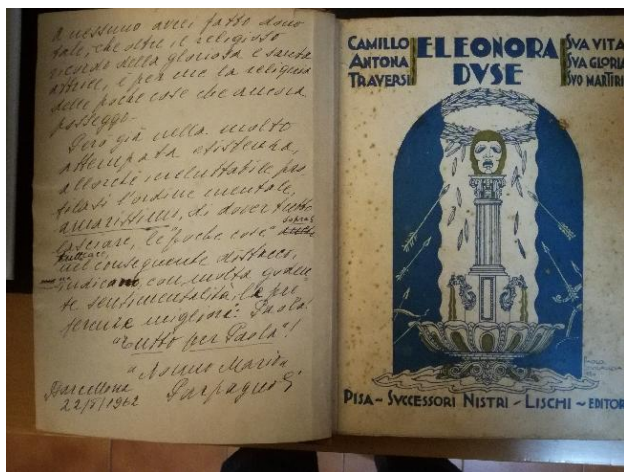 a nessuno avrei fatto dono
tale, che oltre il religioso
ricordo della gloriosa e santa
attrice, è per me la religione
delle poche cose che ancora
posseggo.
Però già nella molto
attempata esistenza,
l'ordine mentale,
amarissimo, di dover tutto
lasciare, le "poche cose"
nel conseguente distacco,
indicano, con molta
te sentimentalità, le pre
ferenze migliori: Paola!
"Tutto per Paola"!
"Nonno Mario"
Parpagnoli
Barcellona
22/5/1962
CAMILLO
ANTONA
TRAVERSI
ELEONORA
DVSE
SVA VITA
SVA GLORIA
SVO MARTIRI
PISA ~ SVCCESSORI NISTRI - LISCHI ~ EDITOR